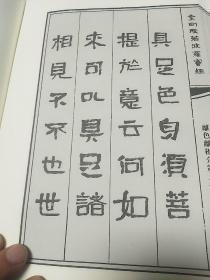 金剛般若波羅蜜經
離色離相分第二
具足色身須菩
提於意云何如
來可以具足諸
相見不不也世